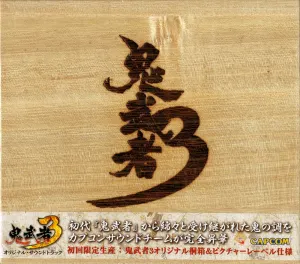 鬼武者3
初代『鬼武者』から綿々と受け継がれた鬼の調を
カプコンサウンドチームが完全昇華
鬼武者3
オリジナル・サウンドトラック
初回限定生産：鬼武者3オリジナル桐箱&ピクチャーレーベル仕様
CAPCOM